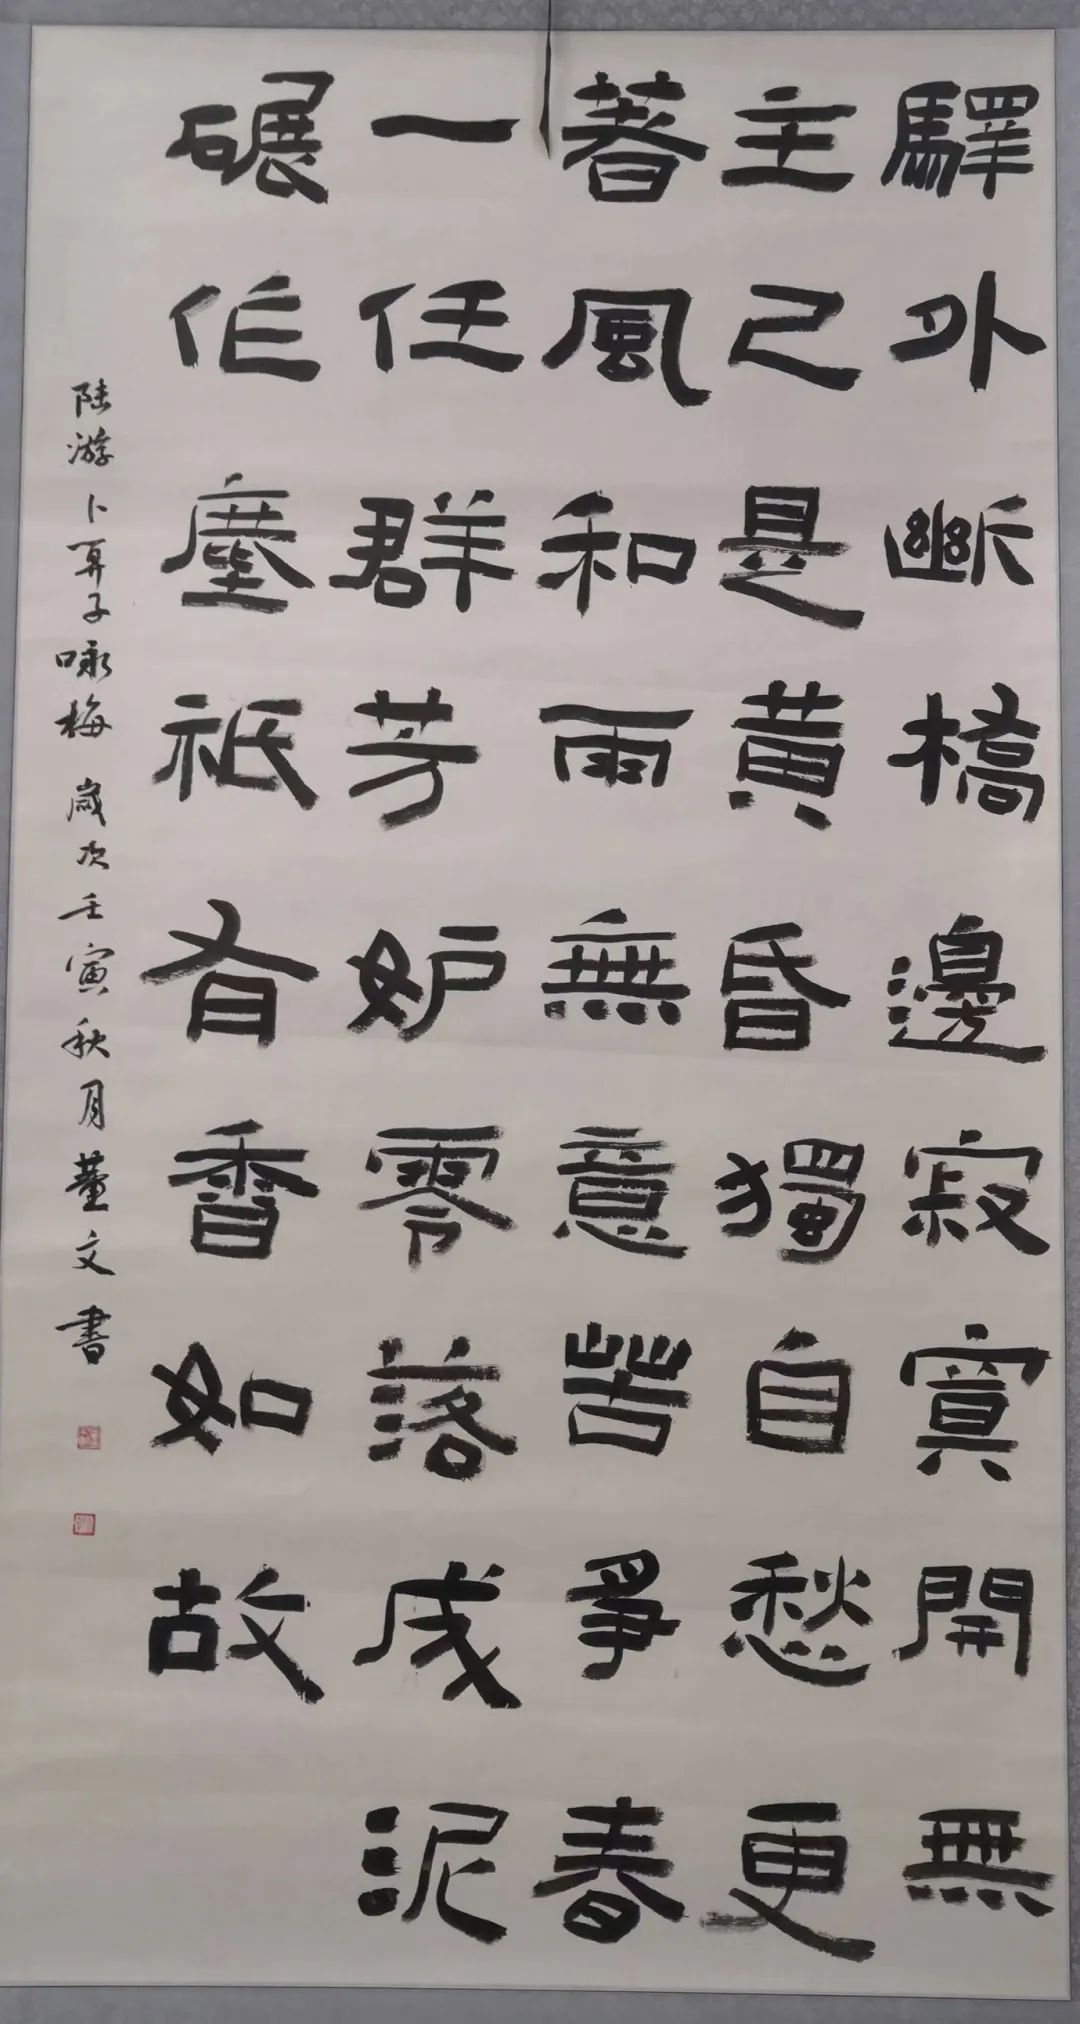 驛外斷橋邊寂寞開無
主已是黃昏獨自愁更
著風和雨無意苦爭春
一任群芳妒零落成泥
碾作塵祇有香如故
陸游卜算子咏梅 歲次壬寅秋月董文書